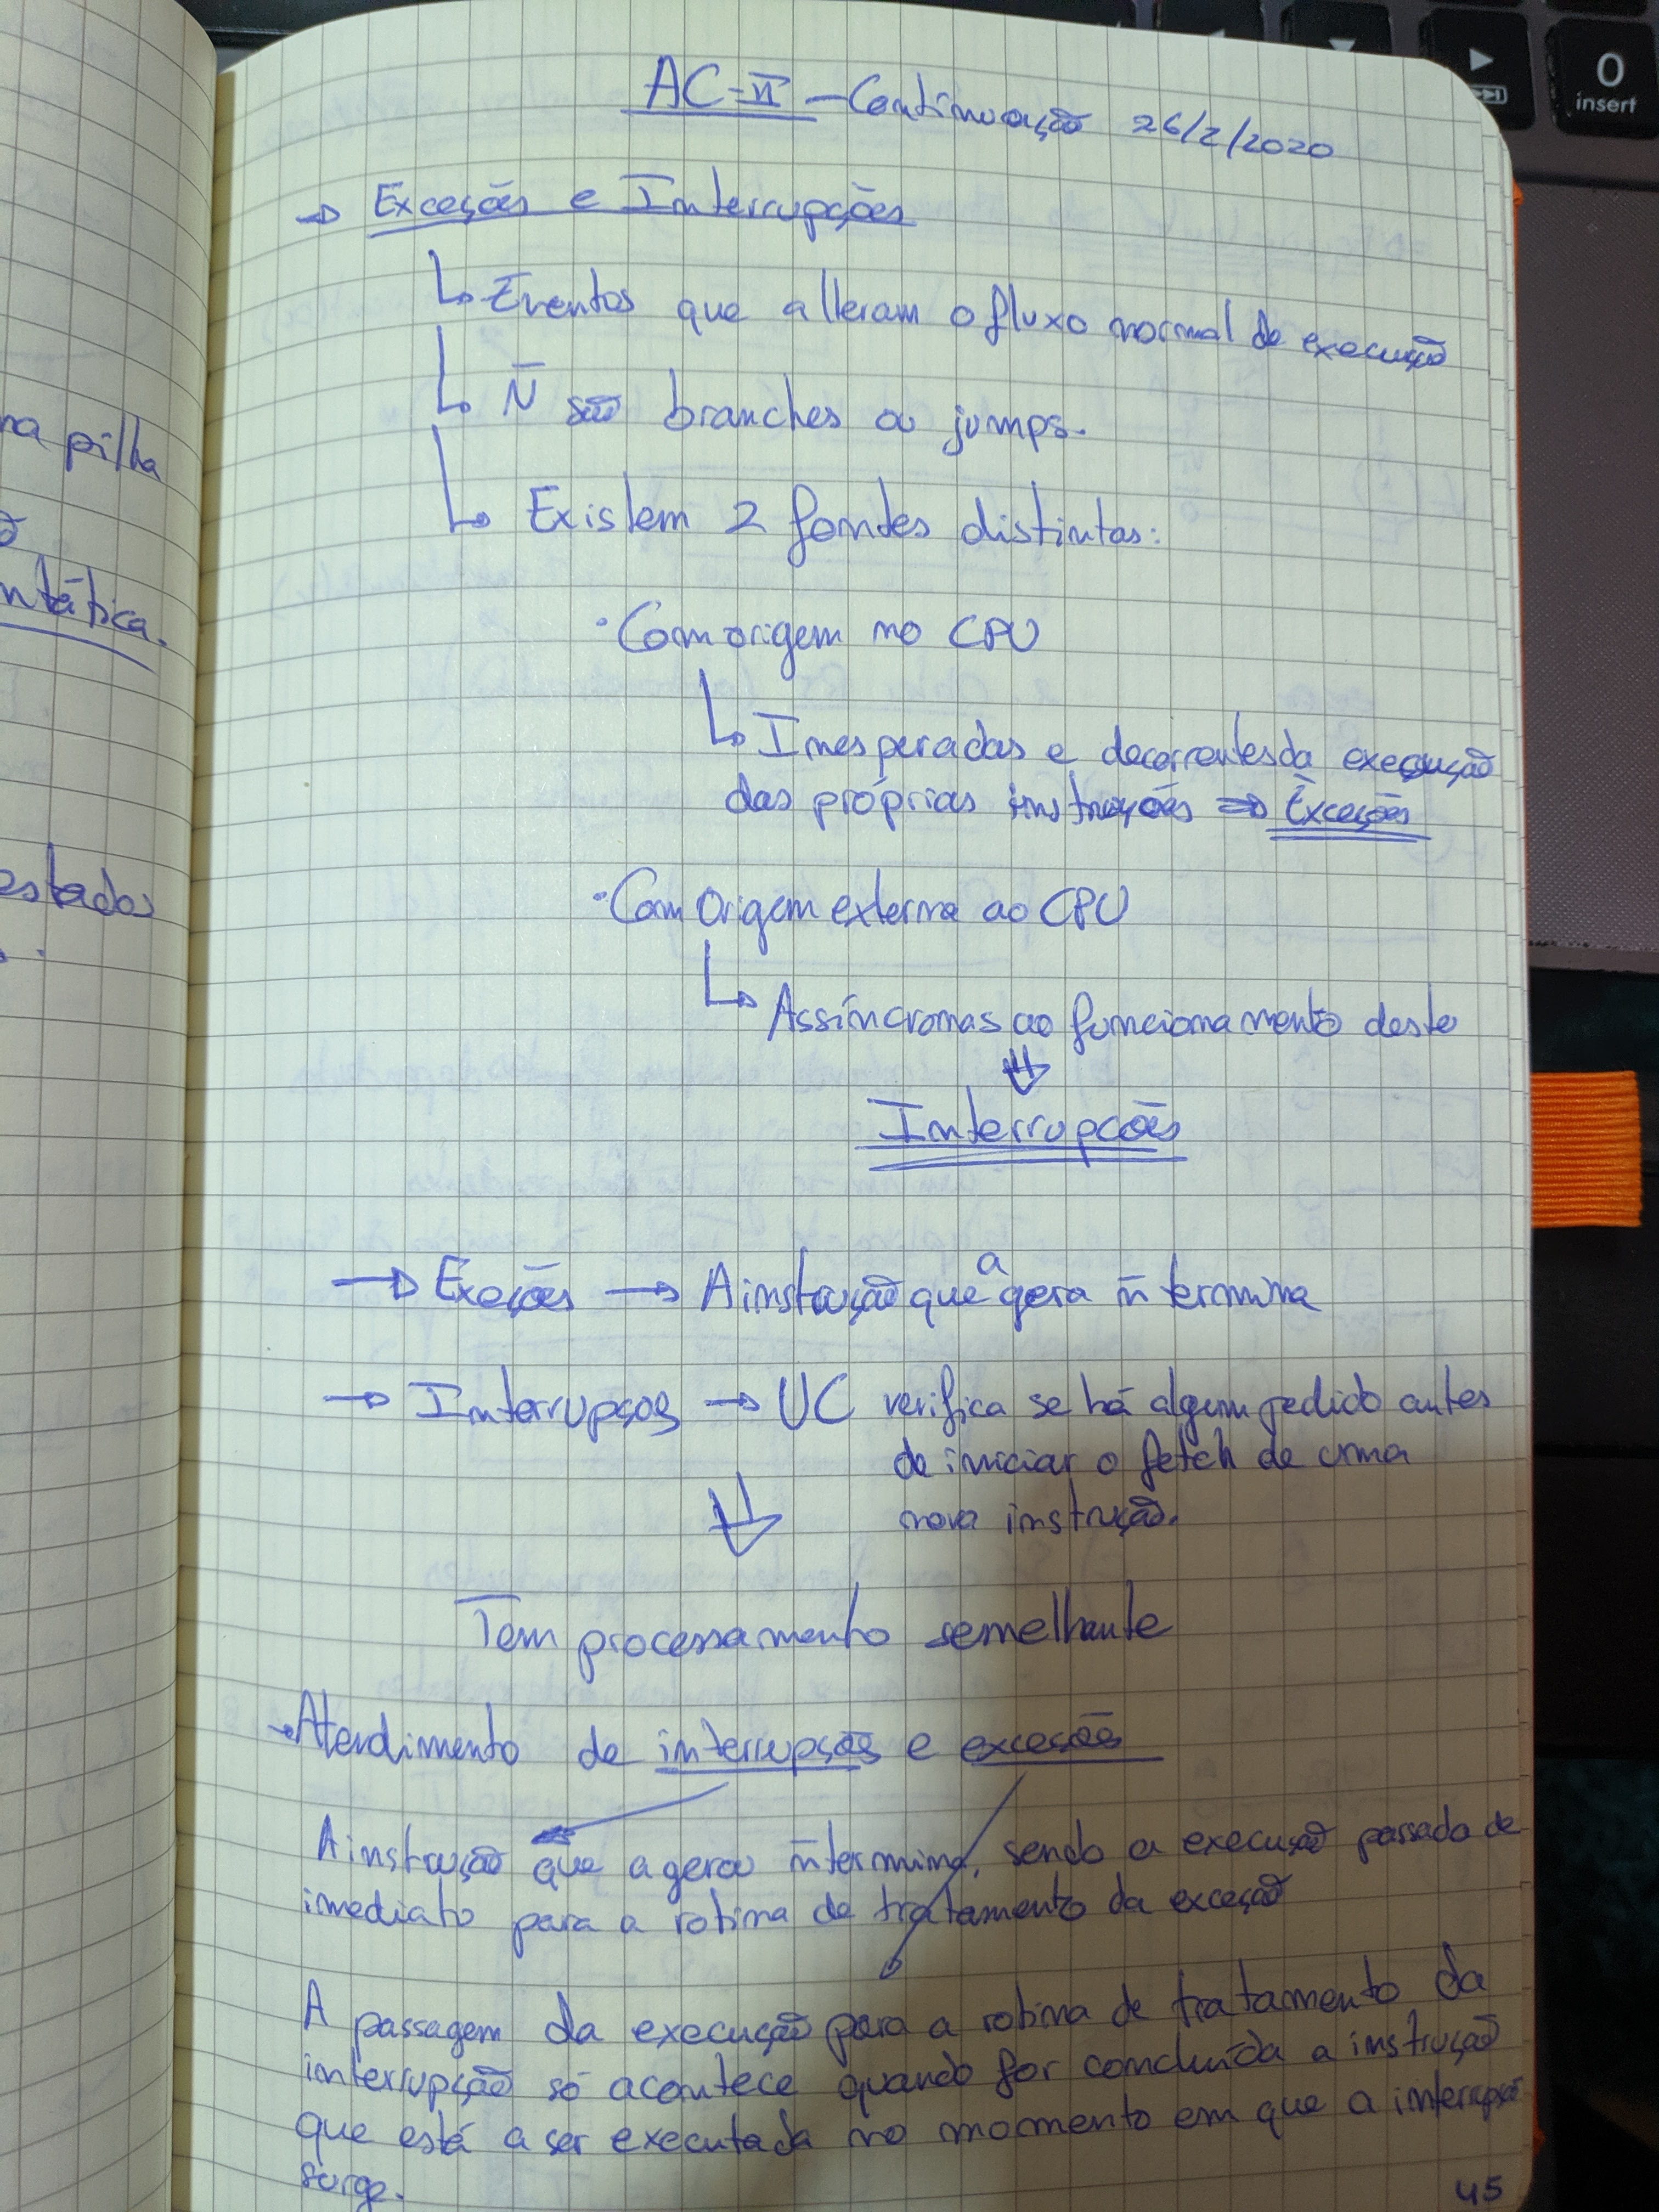 na pilha
ntática.
estados
AC-II – Continuação 26/2/2020
→ Exceções e Interrupções
↳ Eventos que alteram o fluxo normal de execução
↳ N̄ são branches ou jumps.
↳ Existem 2 fontes distintas:
· Com origem no CPU
↳ Inesperadas e decorrentes da execução
das próprias instruções ⇒ Exceções
· Com origem externa ao CPU
↳ Assíncronas ao funcionamento deste
⇓
Interrupções
→ Exeções → A instrução que a gera n̄ termina
→ Interrupções → UC verifica se há algum pedido antes
de iniciar o fetch de uma
nova instrução.
⇓
Tem processamento semelhante
→ Atendimento de interrupções e exceções
A instrução que a gerou n̄ termina, sendo a execução passada de
imediato para a rotina de tratamento da exceção
A passagem da execução para a rotina de tratamento da
interrupção só acontece quando for concluída a instrução
que está a ser executada no momento em que a interrupção
surge.
45
0
insert